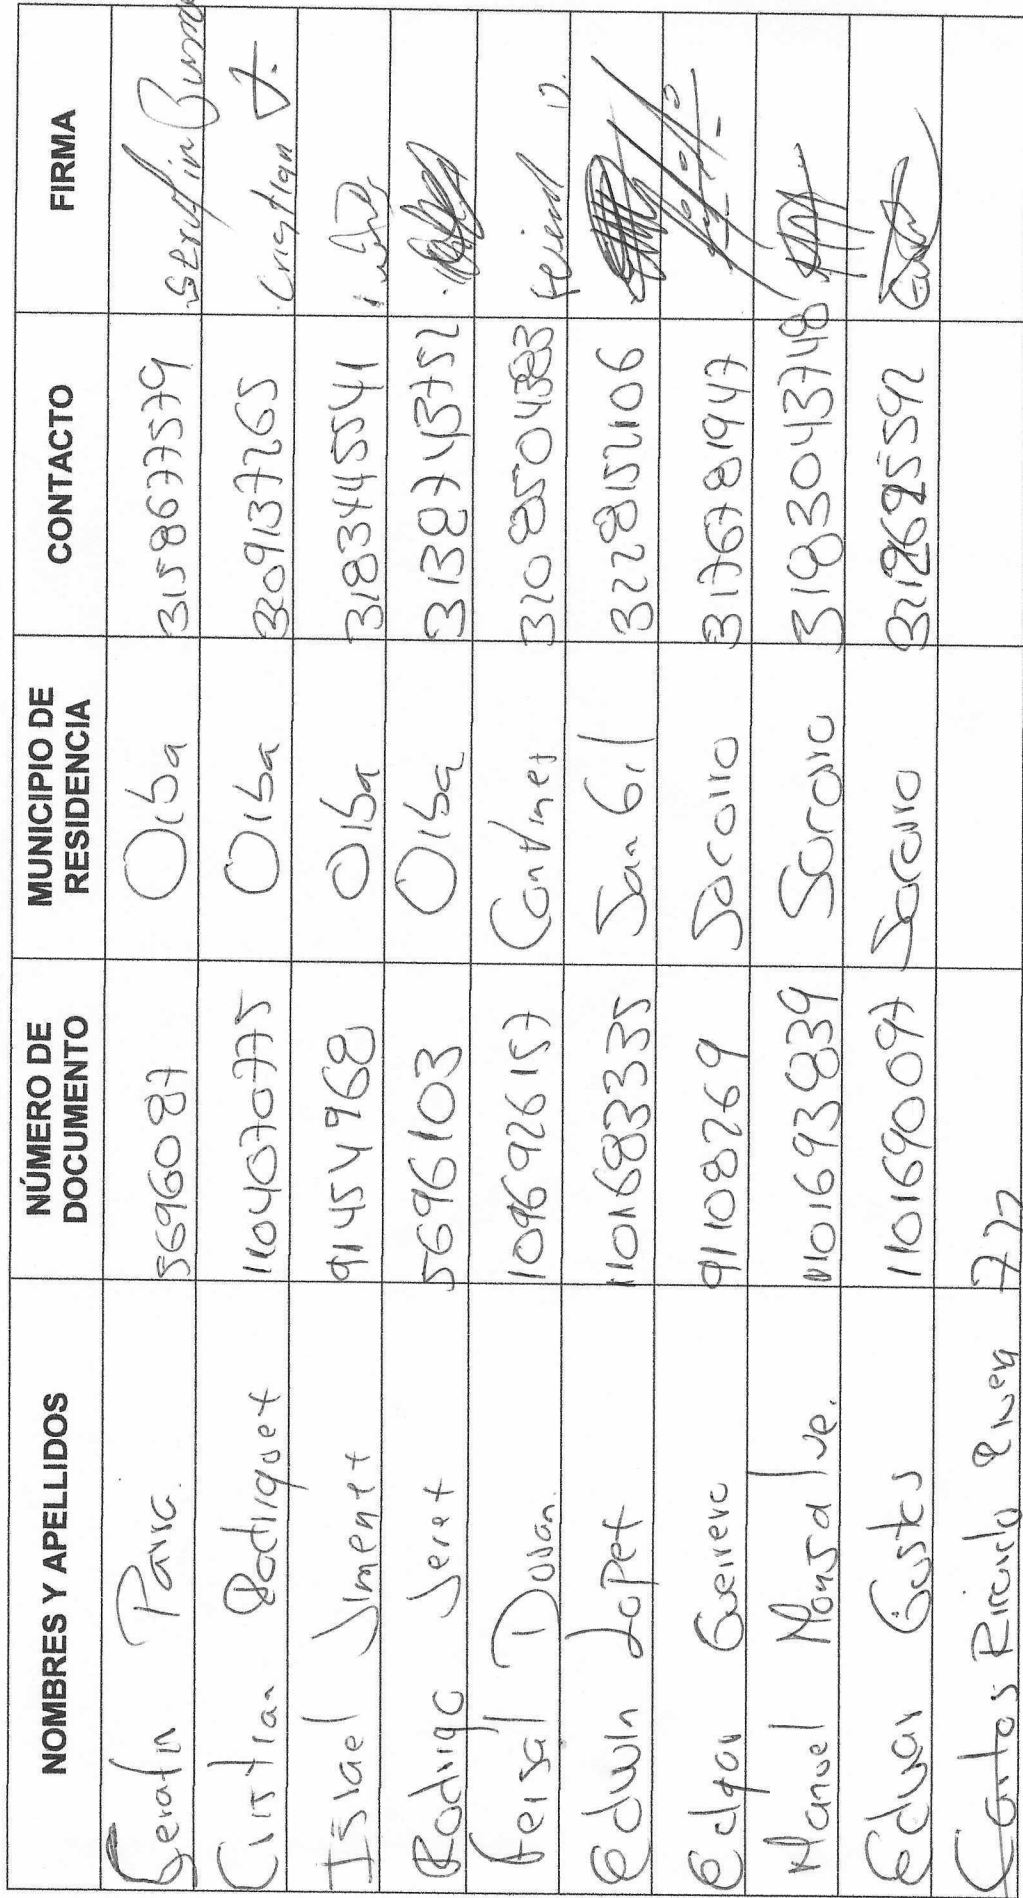 NOMBRES Y APELLIDOS NÚMERO DE DOCUMENTO MUNICIPIO DE RESIDENCIA CONTACTO FIRMA
Serafin Parra 5696087 Oiba 3158677579 Serafin
Cristian Rodriguez 1104070775 Oiba 3209137265 Cristian J.
Israel Jimenez 91454968 Oiba 3183445541
Rodrigo Jerez 5696103 Oiba 3138743752
Feisal Duran. 1096926157 Confines 3208504383 Feisal D.
Edwin Lopez 1101683335 San Gil 3228152106
Edgar Guerrero 91108269 Socorro 3176781947
Manuel Monsalve. 1101693839 Socorro 3183043748
Edwar 1101690097 Socorro 3212685592
Carlos Ricardo 722